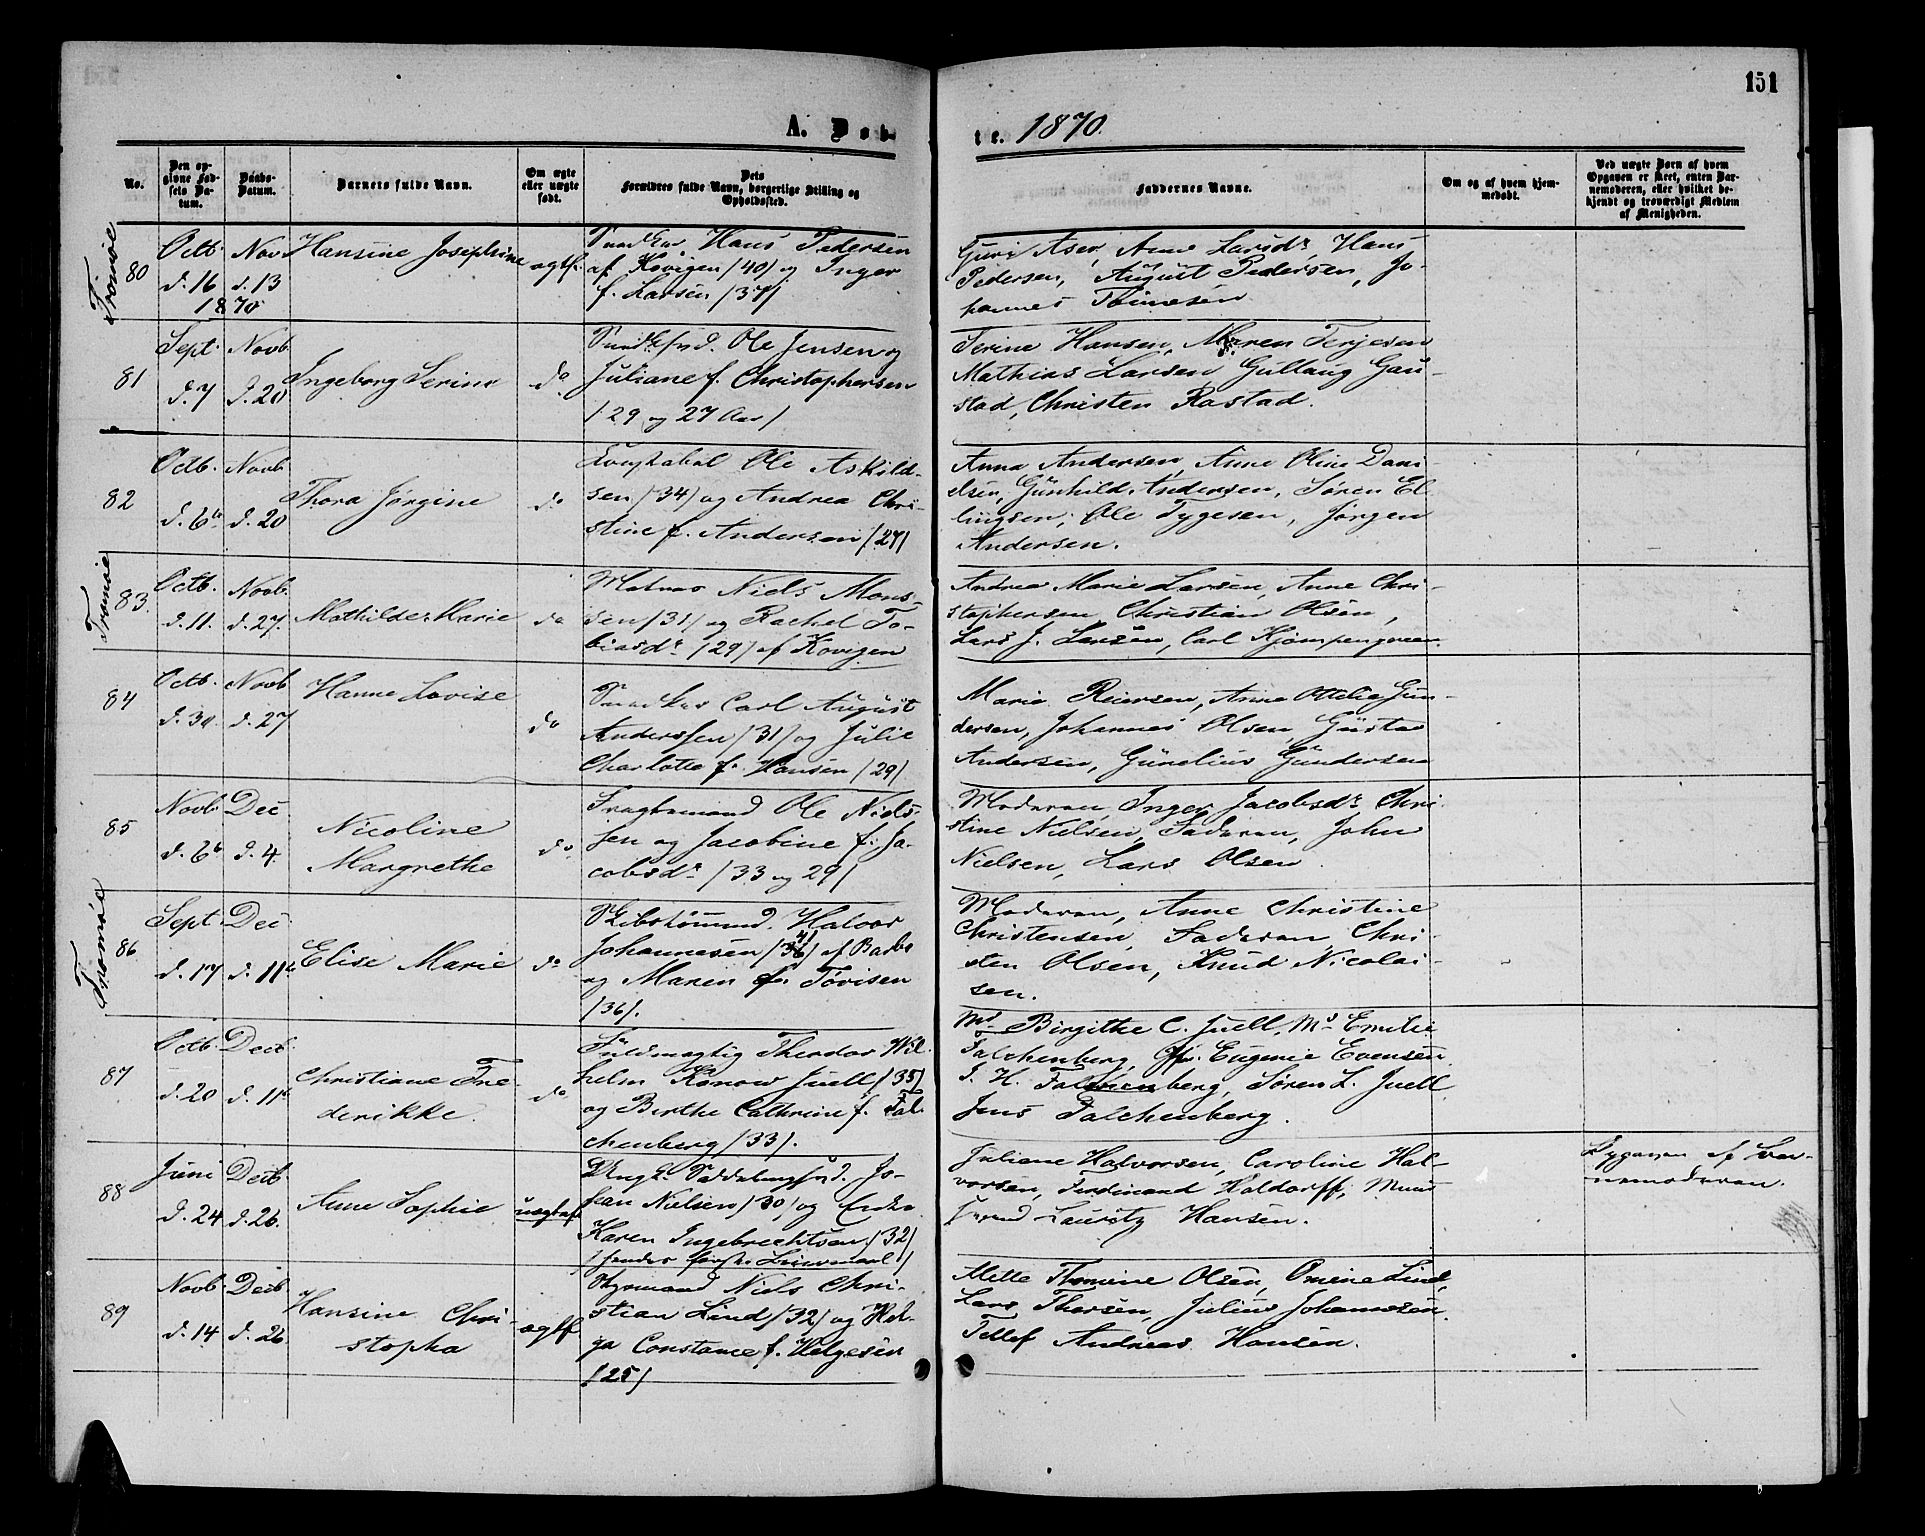 151
A. Døbte. 1870.
No.
Den opgivne Fødsels Datum.
Daabs-Datum.
Barnets fulde Navn.
Om ægte eller uægte født.
Dets Forældres fulde Navn, borgerlige Stilling og Opholdssted.
Faddernes Navne.
Om og af hvem hjemmedøbt.
Ved uægte Børn af hvem Opgaven er skeet, enten Barnemoderen, eller hvilket bekjendt og troværdigt Medlem af Menigheden.
Tromøe
80
Octb. d. 16 1870
Nov d. 13
Hansine Josephine
ægtf.
Hans Pedersen
af Kovigen /40/ og Inger
f. Larsen /37/
Guri Aser, Ane Larsdr Hans
Pedersen, August Pedersen, Jo-
hannes
81
Sept. d. 7
Novb. d. 20
Ingeborg Serine
do
Ole Jensen og
Juliane f. Christophersen
/29 og 27 Aar/
Terine Hansen, Maren Terjesen
Mathias Larsen Gullaug Gau-
stad, Christen Rostad.
82
Octb. d. 6te
Novb. d. 20
Thora Jørgine
do
Ole Askild-
sen /34/ og Andrea Chri-
stine f. Andersen /27/
Anna Andersen, Anne Oline Dani-
elsen, Günhild Andersen, Søren El-
lingsen, Ole Tygesen, Jørgen
Andersen.
Tromøe
83.
Octb. d. 11.
Novb. d. 27.
Mathilde Marie
do
Matros Niels Mons-
sen /31/ og Rachel To-
biasdr /29/ af Kovigen
Andrea Marie Larsen, Anne Chri-
stophersen, Christian Olsen,
Lars J. Larsen, Carl
84
Octb. d. 30.
Novb. d. 27
Hanne Lovise
do
Carl August
Anderssen /31/ og Julie
Charlotte f. Hansen /29/
Marie Reiersen, Anne Ottelie Gun-
dersen, Johannes Olsen, Güstav
Andersen, Günelius Gündersen
85
Novb. d. 6te
Dec. d. 4.
Nicoline
Margrethe
do
Ole Niels-
sen og Jacobine f. Ja-
cobsdr /33 og 29/
Moderen, Inger Jacobsdr Chri-
stine Nielsen, Faderen, John
Nielsen, Lars Olsen.
Tromøe
86
Sept. d. 17
Dec. d. 11te
Elise Marie
do
Skibstømmd. Halvor
Johannesen af Barbo
og Maren f. Tøvisen
/36/.
Moderen, Anne Christine
Christensen, Faderen, Chri-
sten Olsen, Knud Nicolai-
sen.
87
Octb. d. 20
Decb. d. 11te
Christiane Fre-
derikke.
do
Fuldmægtig Theodor Wil-
helm Konow Juell /35/
og Birthe Cathrine f. Fal-
chenberg /33/.
Md Birgithe C. Juell, Md Emilie
Falchenberg, Jfr. Eugenie Evensen
J. H. Falchenberg, Søren L. Juell,
Jens Falchenberg.
88
Juni d. 24
Decb. d. 26.
Anne Sophie
uægte
Jo-
han Nielsen /30/ og Enke
Karen Ingebrechtsen /32/
Juliane Halvorsen, Caroline Hal-
vorsen, Ferdinand Haldorff,
Lauritz Hansen.
Opgaven af Bar-
nemoderen.
89
Novb. d. 14
Decb. d. 26
Hansine Chri-
stopha
ægtf
Styrmand Niels Chri-
stian Lind /32/ og Hel-
ga Constance f. Helgesen
/25/
Mette Thomine Olsen, Omine Lind,
Lars Thorsen, Julius Johannesen.
Tellef Andreas Hansen.